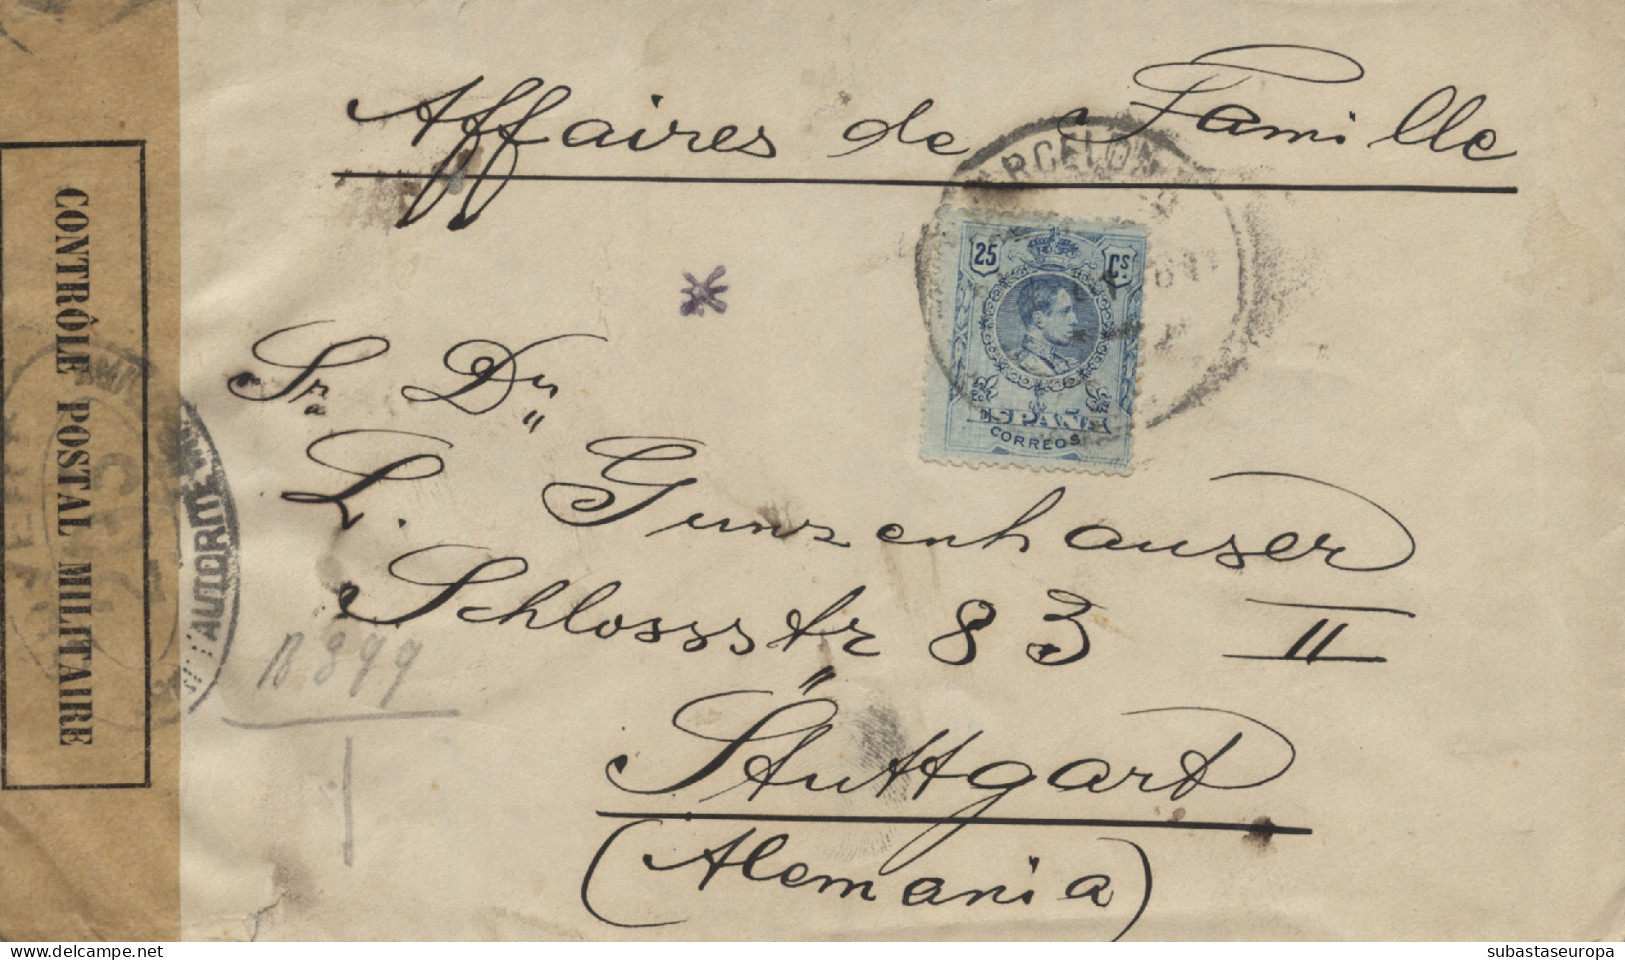 Affaires de Famille
BARCELONA
25 Cs.
ESPAÑA
CORREOS
Sra Dn
L. Gunzenhauser
Schlossstr 83 II
Stuttgart
(Alemania)
CONTRÔLE POSTAL MILITAIRE
OUVERT
AUTORITÉ
B 899
delcampe.net
subastaseuropa